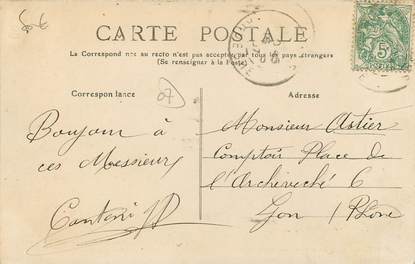 CARTE POSTALE
La Correspondance au recto n'est pas acceptée par tous les pays étrangers
(Se renseigner à la Poste)
Correspondance
Adresse
07
Bonjour à
ces Messieurs
Monsieur Astier
Comptoir Place de
l'Archevêché 6
Lyon / Rhône
5c